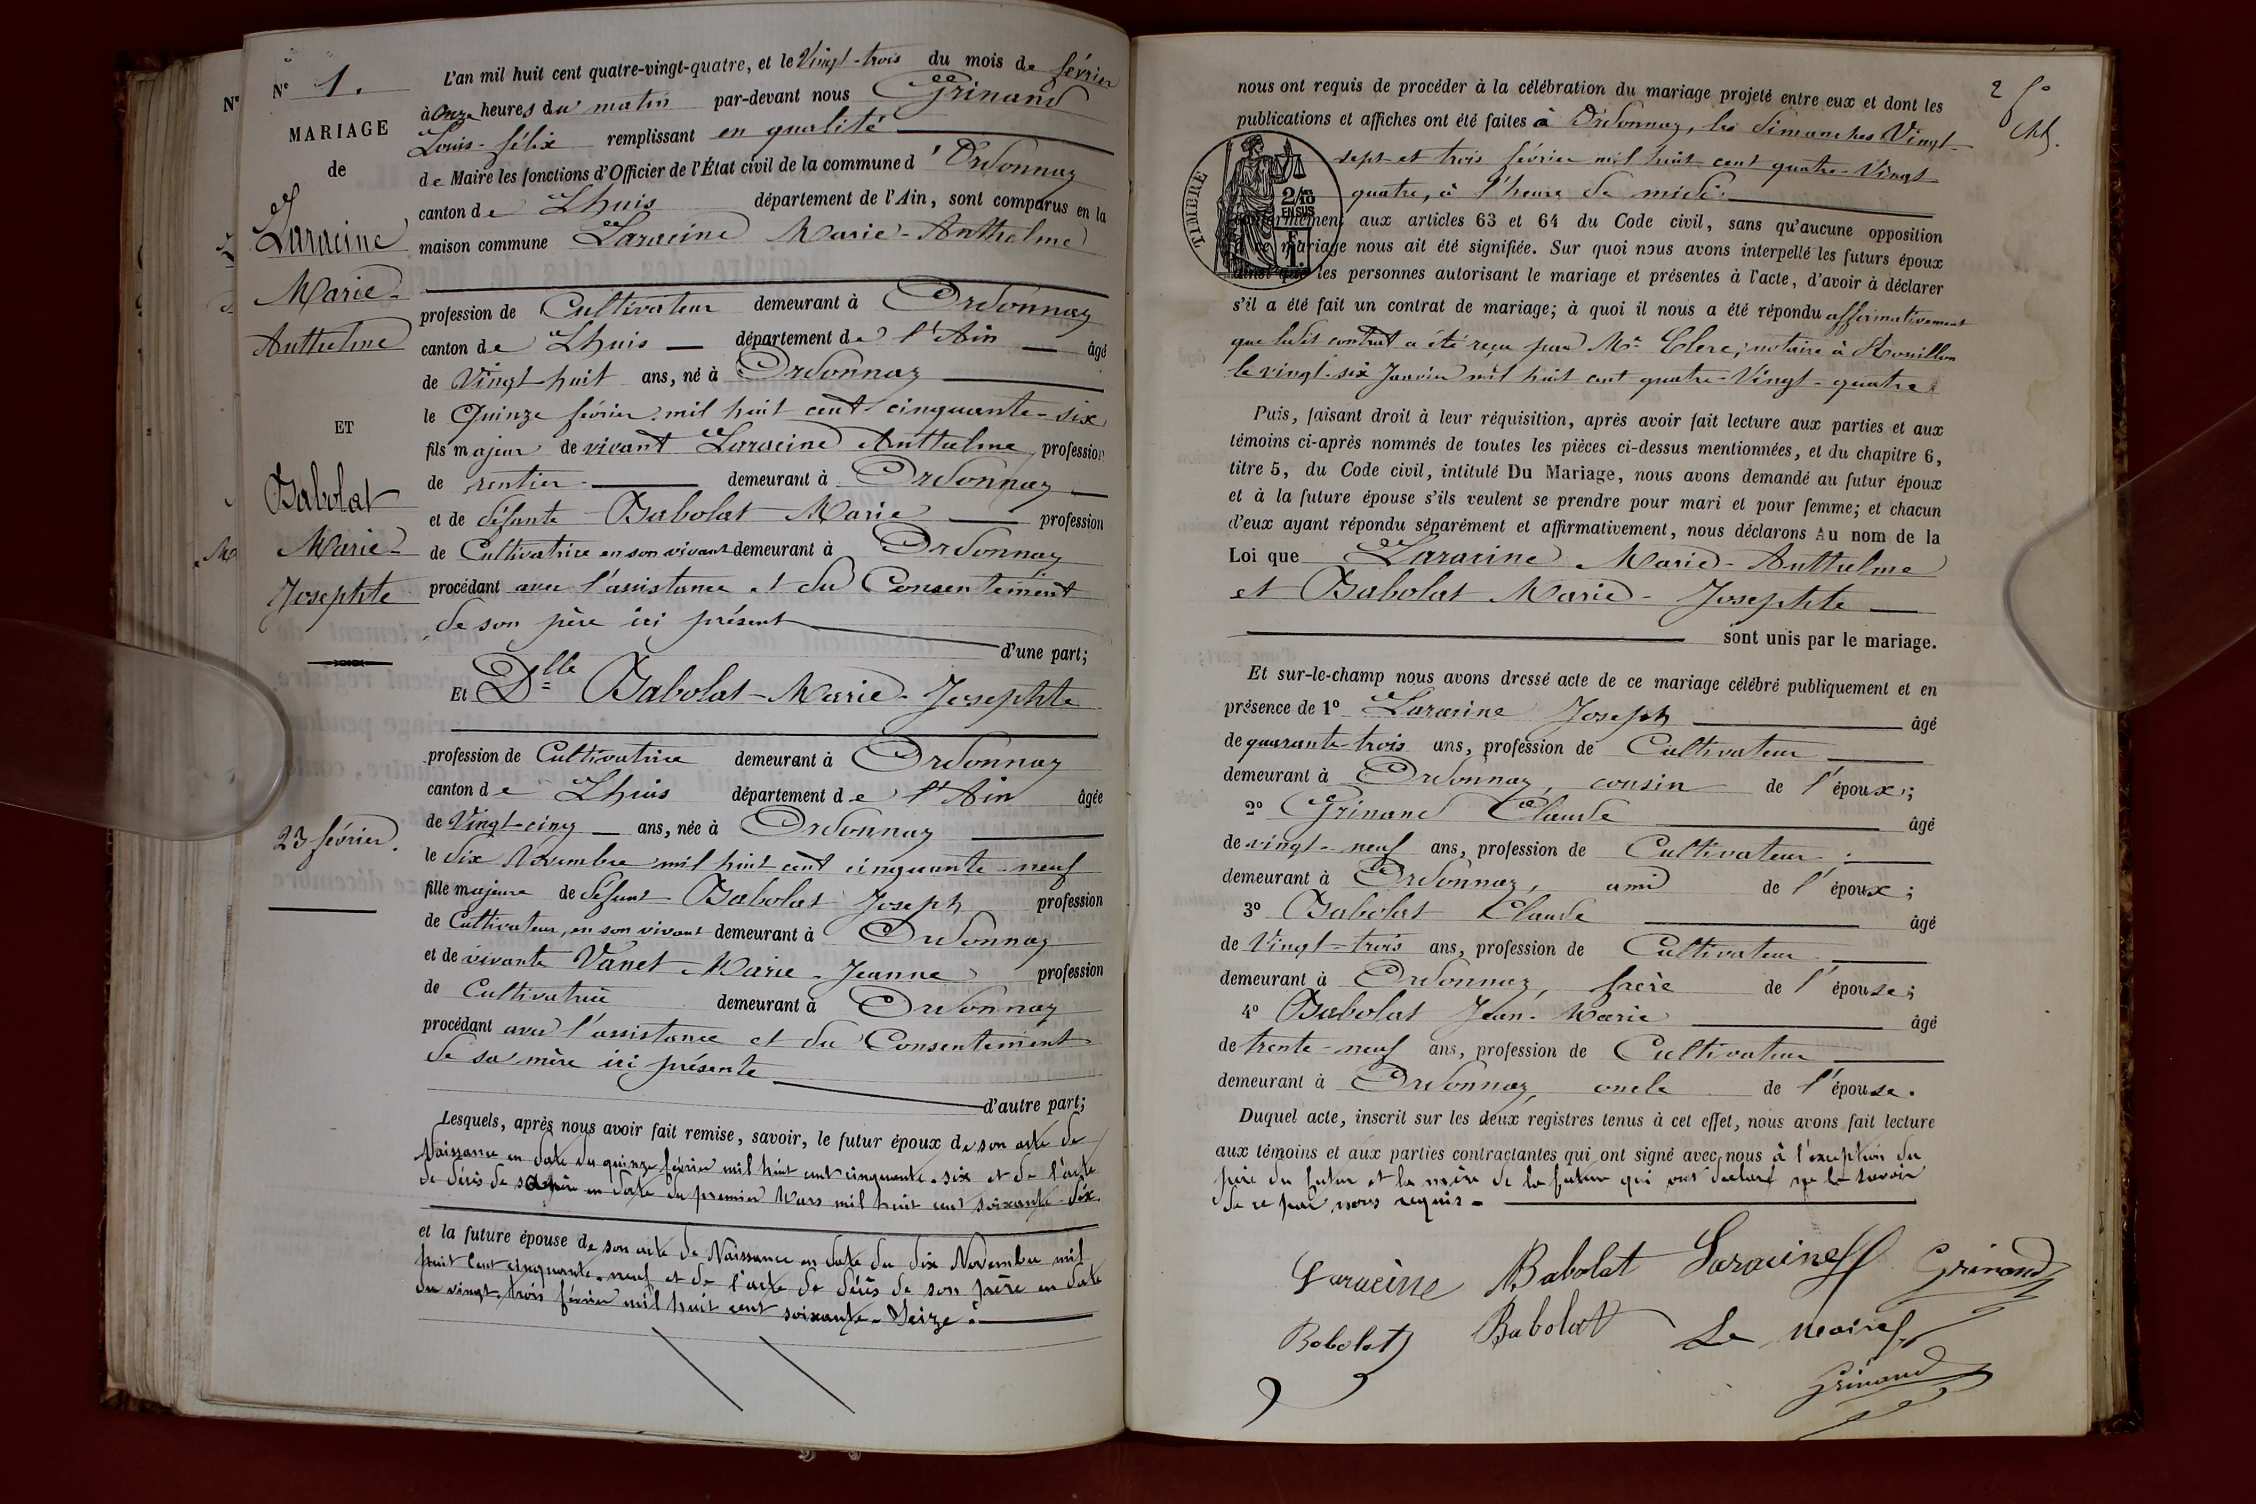 Nº 1.
MARIAGE
de
Laracine
Marie-
Anthelme
ET
Babolat
Marie-
Josephte
23 février.
L'an mil huit cent quatre-vingt-quatre, et le Vingt-trois du mois de février
à Onze heures du matin par-devant nous Grinand
Louis-félix remplissant en qualité
de Maire les fonctions d'Officier de l'État civil de la commune d'Ordonnaz
canton de Lhuis département de l'Ain, sont comparus en la
maison commune Laracine Marie-Anthelme
profession de Cultivateur demeurant à Ordonnaz
canton de Lhuis département de l'Ain âgé
de Vingt-huit ans, né à Ordonnaz
le Quinze février mil huit cent cinquante-six
fils majeur de vivant Laracine Anthelme, profession
de rentier demeurant à Ordonnaz
et de défunte Babolat Marie profession
de Cultivatrice en son vivant demeurant à Ordonnaz
procédant avec l'assistance et du Consentement
de son père ici présent
d'une part;
Et Dlle Babolat-Marie-Josephte
profession de Cultivatrice demeurant à Ordonnaz
canton de Lhuis département de l'Ain âgée
de Vingt-cinq ans, née à Ordonnaz
le dix Novembre mil huit cent cinquante-neuf
fille majeure de défunt Babolat Joseph profession
de Cultivateur, en son vivant demeurant à Ordonnaz
et de vivante Vanet-Marie-Jeanne profession
de Cultivatrice demeurant à Ordonnaz
procédant avec l'assistance et du Consentement
de sa mère ici présente
d'autre part;
Lesquels, après nous avoir fait remise, savoir, le futur époux de son acte de
Naissance en date du quinze février mil huit cent cinquante-six et de l'acte
de décès de sa mère en date du premier Mars mil huit cent soixante-dix.
et la future épouse de son acte de Naissance en date du dix Novembre mil
huit cent cinquante-neuf et de l'acte de décès de son père en date
du vingt-trois février mil huit cent soixante-seize.
2 fo
nous ont requis de procéder à la célébration du mariage projeté entre eux et dont les
publications et affiches ont été faites à Ordonnaz, les dimanches Vingt-
sept et trois février mil huit cent quatre-Vingt
quatre, à l'heure de midi.
TIMBRE
2/10
EN SUS
F
1.
aux articles 63 et 64 du Code civil, sans qu'aucune opposition
mariage nous ait été signifiée. Sur quoi nous avons interpellé les futurs époux
ainsi que les personnes autorisant le mariage et présentes à l'acte, d'avoir à déclarer
s'il a été fait un contrat de mariage; à quoi il nous a été répondu affirmativement
que ledit contrat a été reçu par Me Clerc, notaire à Rouillon
le vingt-six Janvier mil huit cent quatre-Vingt-quatre.
Puis, faisant droit à leur réquisition, après avoir fait lecture aux parties et aux
témoins ci-après nommés de toutes les pièces ci-dessus mentionnées, et du chapitre 6,
titre 5, du Code civil, intitulé Du Mariage, nous avons demandé au futur époux
et à la future épouse s'ils veulent se prendre pour mari et pour femme; et chacun
d'eux ayant répondu séparément et affirmativement, nous déclarons Au nom de la
Loi que Laracine Marie-Anthelme
et Babolat Marie-Josephte
sont unis par le mariage.
Et sur-le-champ nous avons dressé acte de ce mariage célébré publiquement et en
présence de 1º Laracine Joseph âgé
de quarante-trois ans, profession de Cultivateur
demeurant à Ordonnaz, cousin de l'époux;
2º Grinand Claude âgé
de vingt-neuf ans, profession de Cultivateur
demeurant à Ordonnaz, ami de l'époux;
3º Babolat Claude âgé
de Vingt-trois ans, profession de Cultivateur
demeurant à Ordonnaz, frère de l'épouse;
4º Babolat Jean-Marie âgé
de trente-neuf ans, profession de Cultivateur
demeurant à Ordonnaz, oncle de l'épouse.
Duquel acte, inscrit sur les deux registres tenus à cet effet, nous avons fait lecture
aux témoins et aux parties contractantes qui ont signé avec nous à l'exception du
père du futur et la mère de la future qui ont déclaré ne le savoir
de ce par nous requis-
Laracine Babolat Laracine Grinand
Babolat Babolat Le maire
Grinand